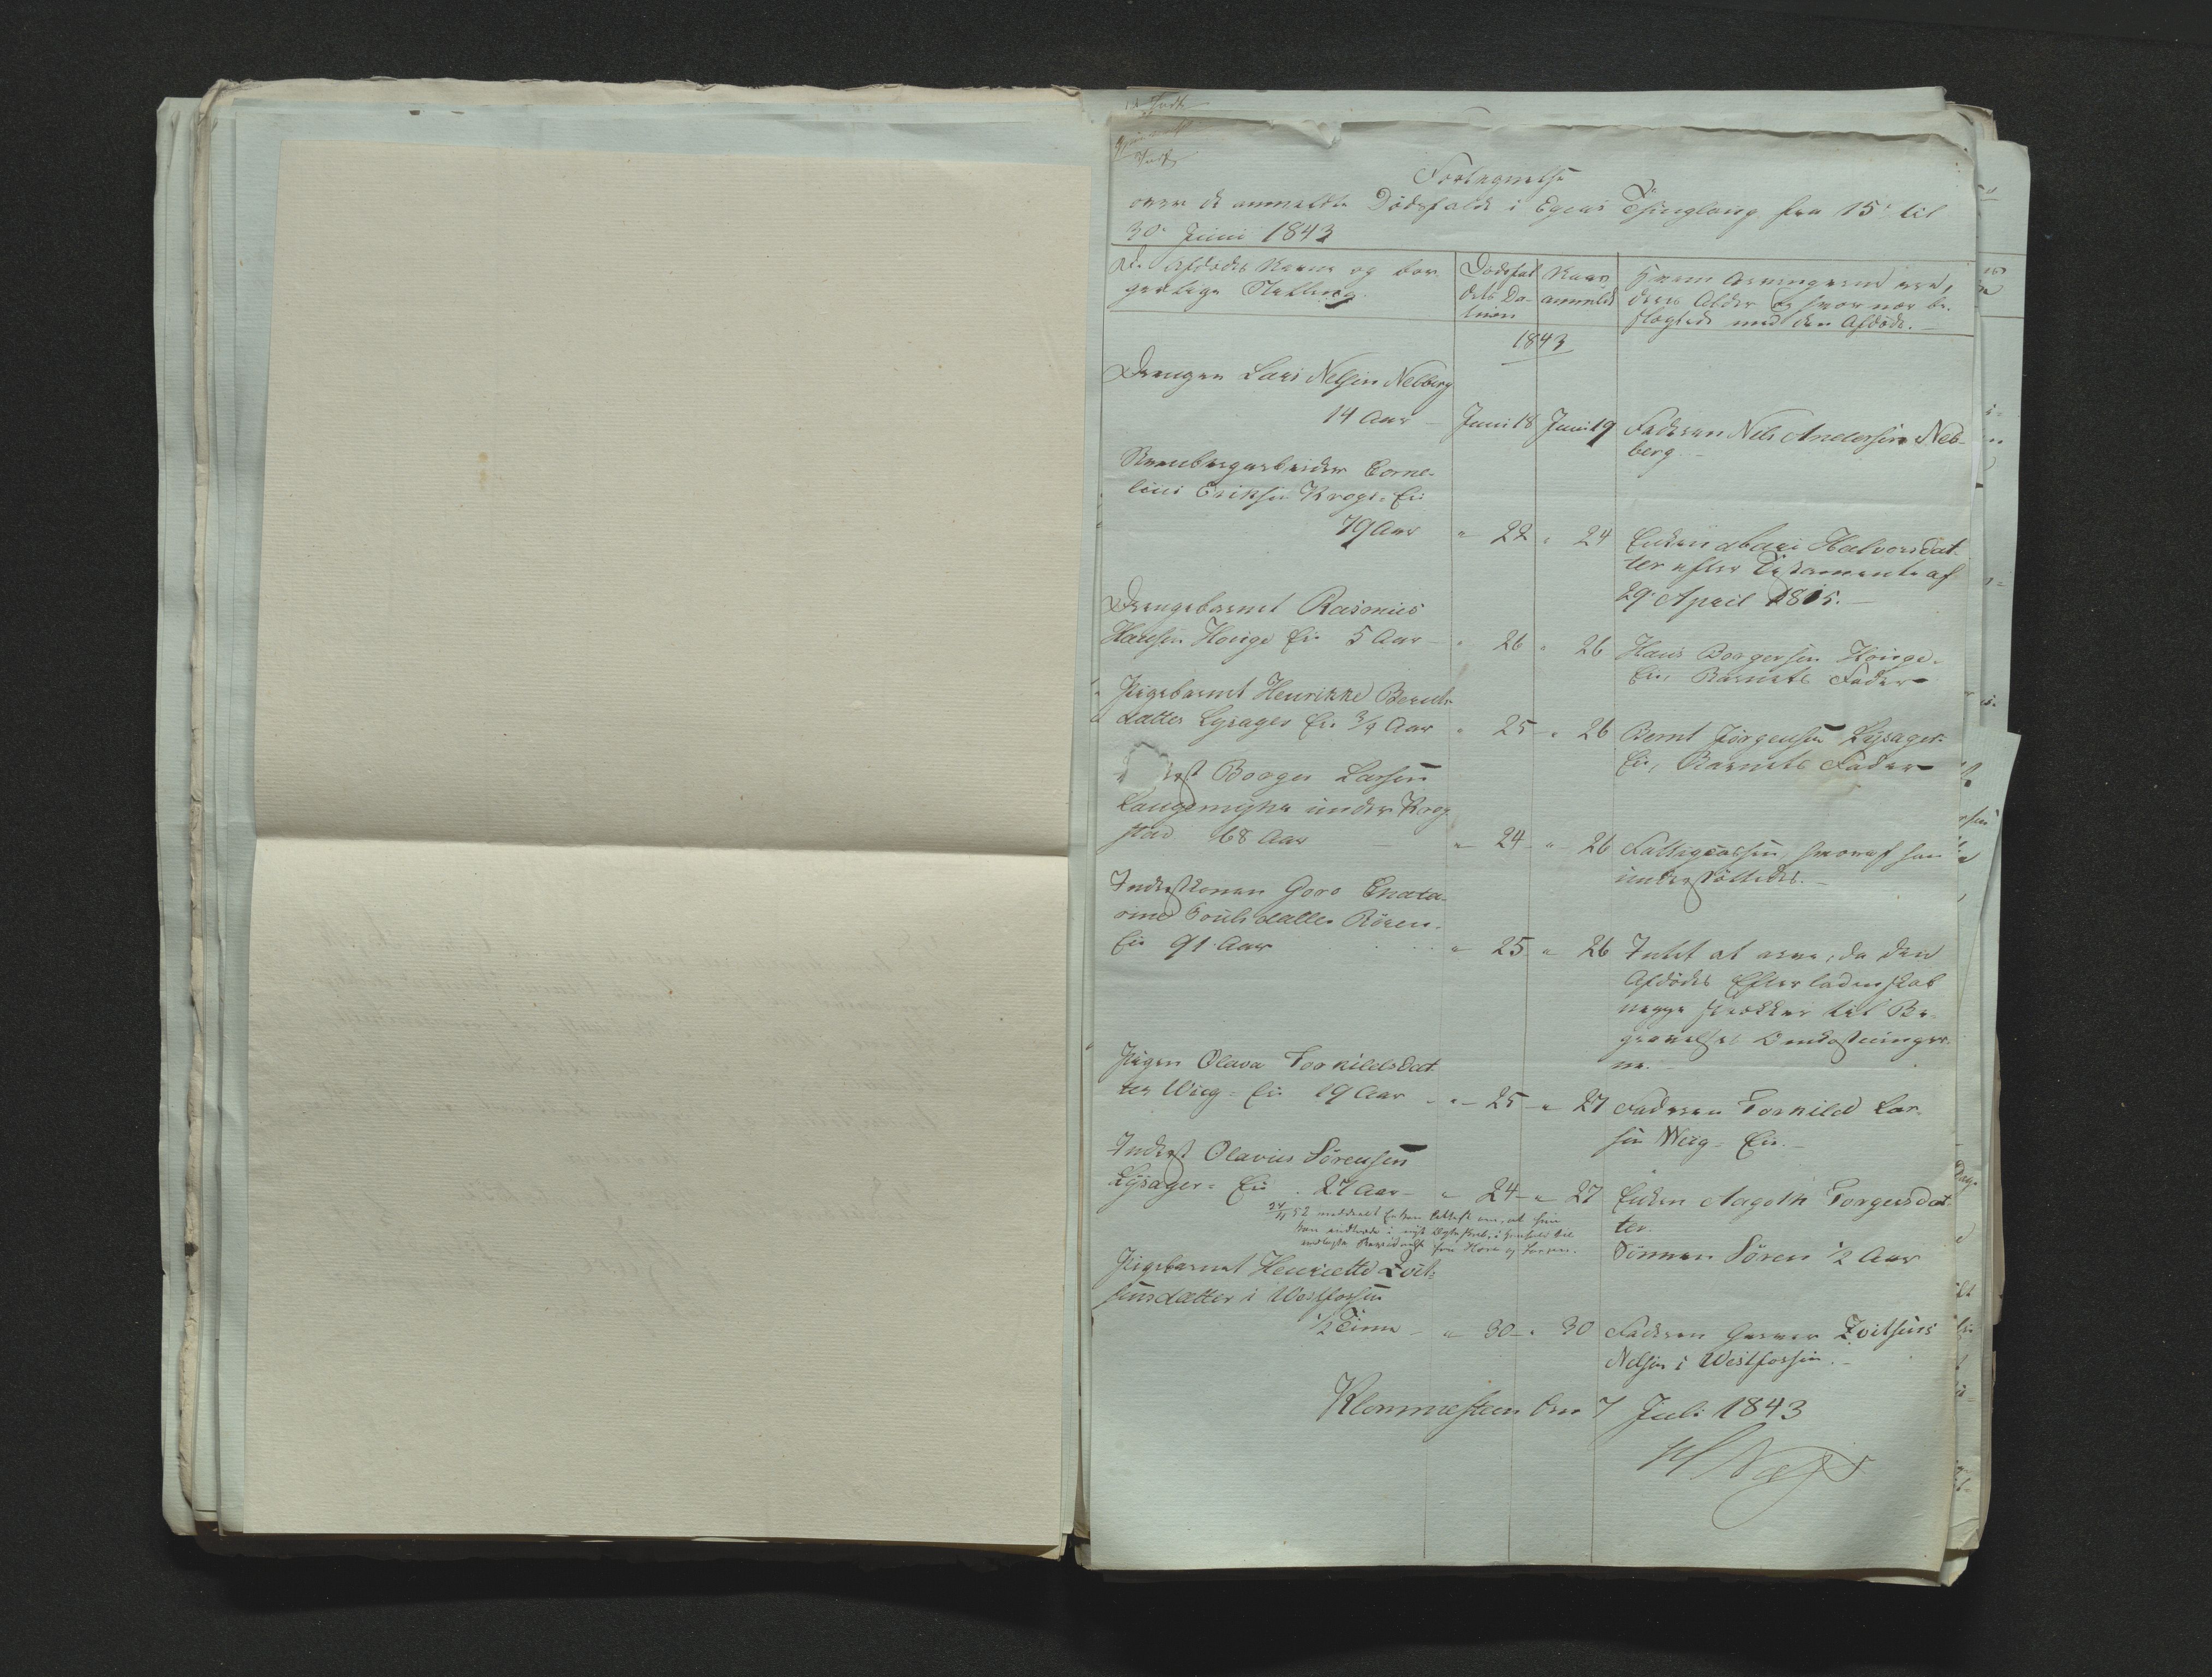 Fortegnelse
over de anmeldte Dödsfald i Egers Thinglaug fra 15de til
30de Juni 1843
De Afdödes Navne og bor-
gerlige Stilling.
Dödsfal
dets Da-
tum
Naar
anmeldt
Hvem Arvingerne ere,
deres Alder og hvor nær be-
slægtede med den Afdöde.
1843
Drengen Lars Nelsen Nedberg
14 Aar
Juni 18
Juni 19
Faderen Nils Andersen Ned-
berg.
Corne-
lius Eriksen Krogs-Eie
79 Aar
" 22
" 24
Enken Mari Halvorsdat-
ter efter Testamente af
29. April 1815.
Drengebarnet Rasmus
Hansen Houge Eie 5 Aar
" 26
" 26
Hans Borgersen Houge-
Eie, Barnets Fader
Pigebarnet Henrikke Bernts-
datter Lysager Eie 3/4 Aar
" 25
" 26
Bernt Jörgensen Lysager-
Eie, Barnets Fader
Borger Larsen
Langemyhr under Krog-
stad 68 Aar
" 24
" 26
Fattigcassen, hvoraf han
understöttedes.
Inderstkonen Goro Cnata-
rine Poulsdatter Rören-
Eie 91 Aar
" 25
" 26
Intet at arve, da den
Afdödes Efterladenskab
neppe strækker til Be-
gravelses Omkostninger-
ne.
Pigen Olava Torkildsdat-
ter Wiig-Eie 19 Aar
" 25
" 27
Faderen Torkild Lar-
sen Wiig-Eie.
Inderst Olavus Sörensen
Lysager-Eie 27 Aar
" 24
" 27
Enken Aagoth Torgersdat-
ter.
Sönnen Sören 1/2 Aar
meddeelt Enken Attest om, at hun
kan indtræde i nyt Ægteskab, i Henhold til
Pigebarnet Henriette Zoit-
sensdatter i Westfossen
1/2 Time
" 30
" 30
Faderen Zoitsens
Nelsen i Westfossen.
Klommesteen den 7 Juli 1843